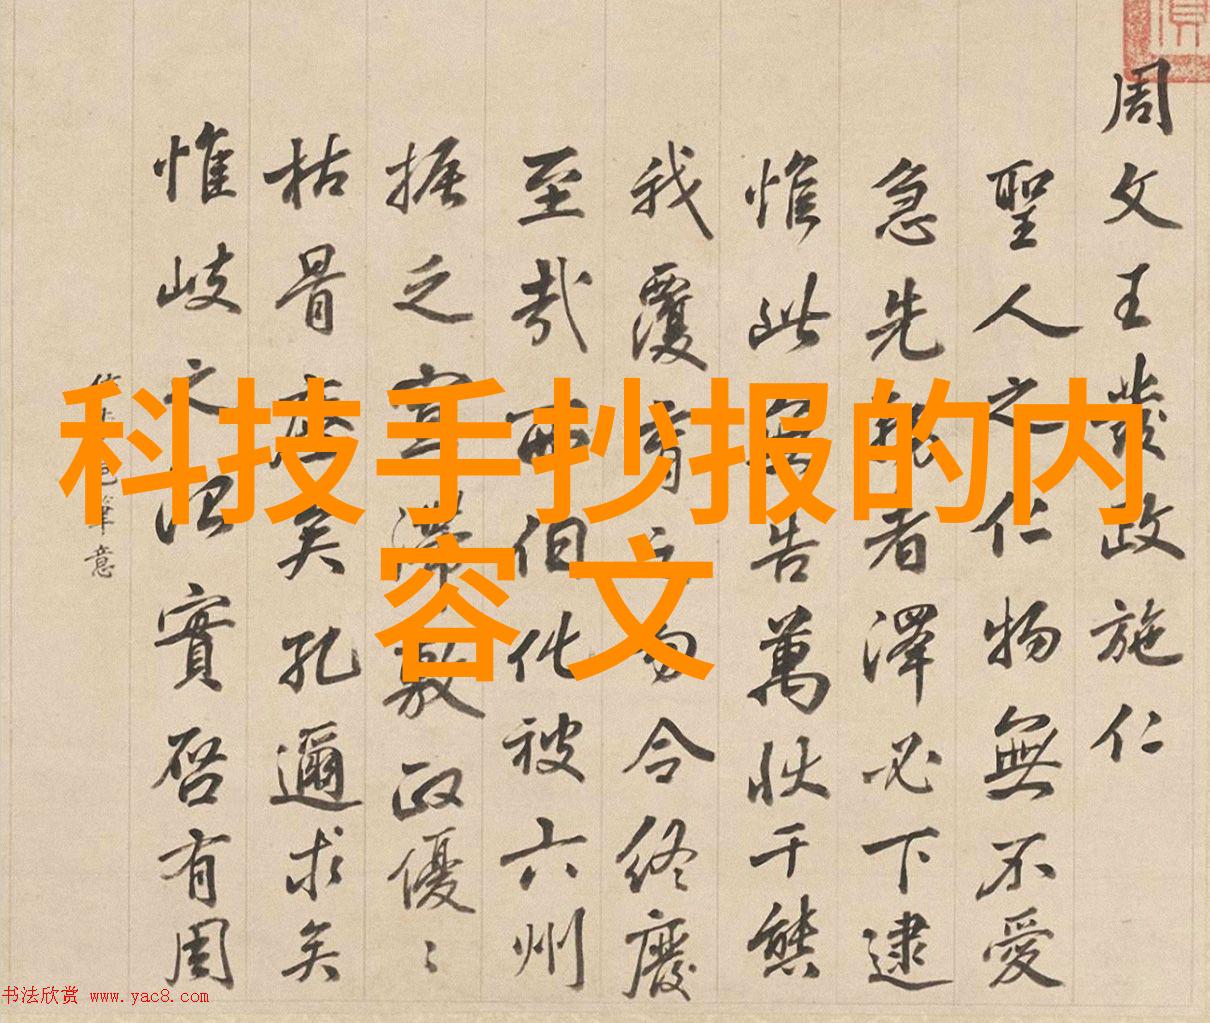 科技手抄报的内
容文
周文王發政施仁
聖人之仁物無不愛
急先者澤必下逮
惟此告萬狀千態
我覆育之勿令終廢
至哉西伯化被六州
振之窮澤敷政優〻
枯骨矣孔邇求矣
惟岐之治實啓有周
筆意
书法欣赏 www.yac8.com